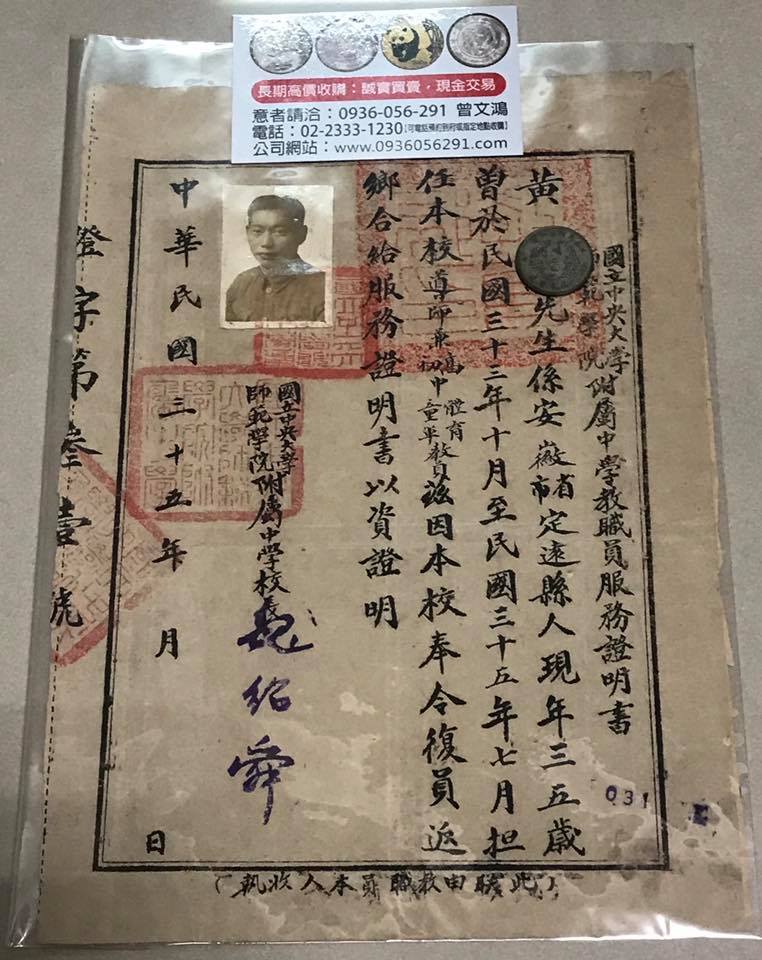 長期高價收購：誠實買賣，現金交易
意者請洽：0936-056-291 曾文鴻
電話：02-2333-1230【可電話預約到府或指定地點收購】
公司網站：www.0936056291.com
國立中央大學師範學院附屬中學教職員服務證明書
黃 先生係安徽省市定遠縣人現年三五歲
曾於民國三十三年十月至民國三十五年七月担
任本校導師兼高初中體育童軍教員茲因本校奉令復員返
鄉合給服務證明書以資證明
國立中央大學師範學院附屬中學校長 魏紹舜
中華民國三十五年 月 日
證字第叁壹號
031
(此聯由教職員本人收執)